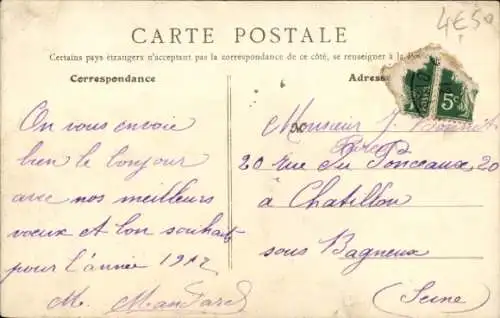 4€50
CARTE POSTALE
Certains pays étrangers n'acceptant pas la correspondance de ce côté, se renseigner à la
Correspondance
Adresse
5c
On vous envoie
bien le bonjour
avec nos meilleurs
vœux et bon souhait
pour l'année 1912
M.
Monsieur J.
20 rue du Ponceaux 20
a Chatillon
sous Bagneux
(Seine)